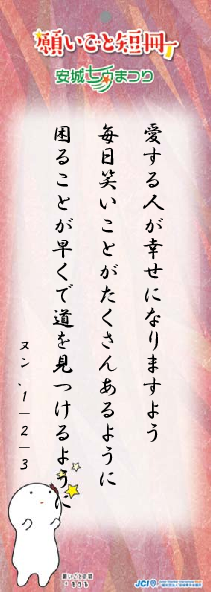 願いごと短冊
安城七夕まつり
愛する人が幸せになりますよう
毎日笑いことがたくさんあるように
困ることが早くで道を見つけるように
ヌン、1-2-3
願いごと短冊
JCI